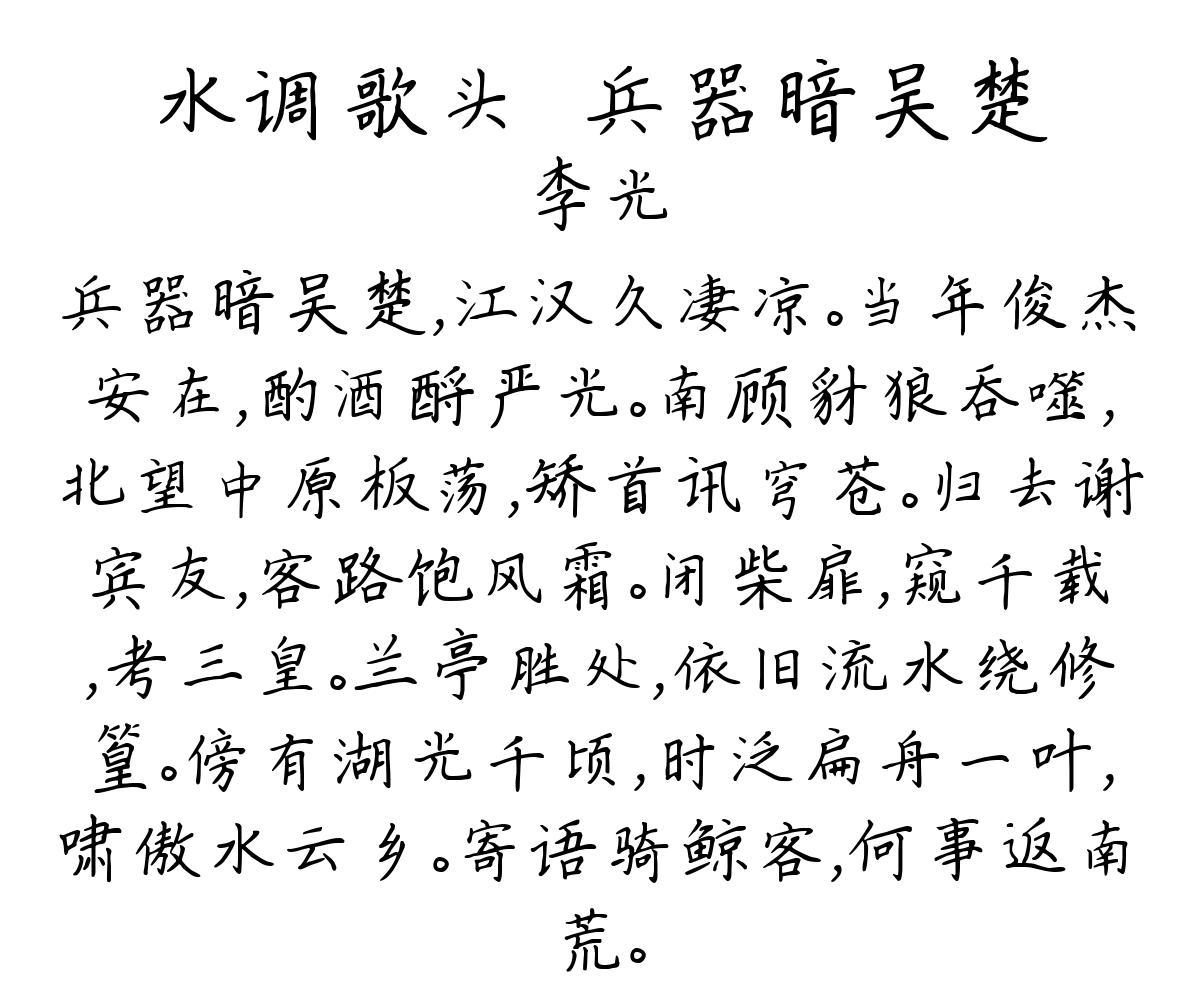 水调歌头 兵器暗吴楚
李光
兵器暗吴楚,江汉久凄凉。当年俊杰
安在,酌酒酹严光。南顾豺狼吞噬,
北望中原板荡,矫首讯穹苍。归去谢
宾友,客路饱风霜。闭柴扉,窥千载
,考三皇。兰亭胜处,依旧流水绕修
篁。傍有湖光千顷,时泛扁舟一叶,
啸傲水云乡。寄语骑鲸客,何事返南
荒。